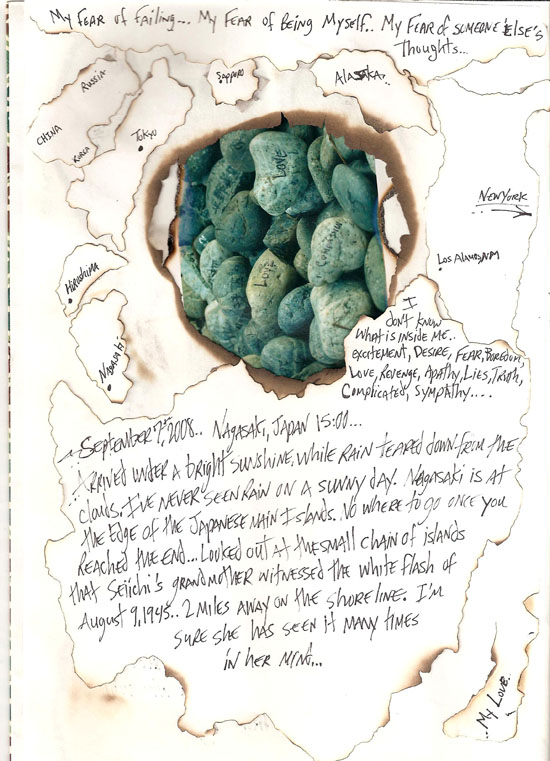 My Fear of failing... My Fear of Being Myself.. My Fear of someone Else's
Thoughts...
Russia
CHINA
Korea
Tokyo
Sapporo
Alaska..
NewYork
Los Alamos, NM
Hiroshima
Nagasaki
LOVE
I
don't know
what is inside me..
excitement, Desire, Fear, Boredom,
Love, Revenge, Apathy, Lies, Truth,
Complicated, Sympathy....
~September 7, 2008.. Nagasaki, Japan 15:00...
Arrived under a bright sunshine, while rain teared down from the
clouds. I've never seen rain on a sunny day. Nagasaki is at
the edge of the Japanese main Islands. No where to go once you
reached the end... Looked out at the small chain of islands
that Seiichi's grandmother witnessed the white flash of
August 9, 1945.. 2 miles away on the shoreline. I'm
sure she has seen it many times
in her mind...
..My Love.